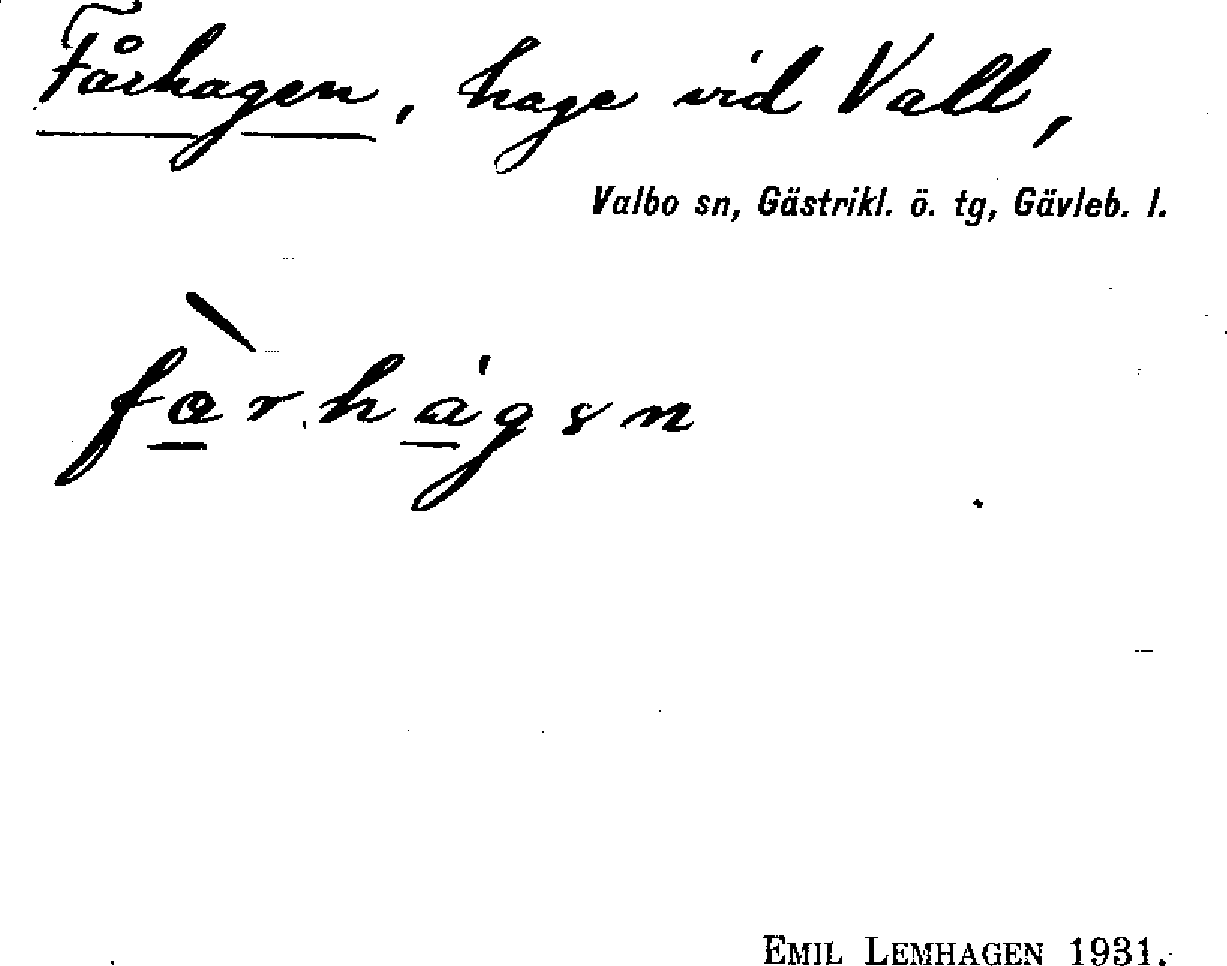 Fårhagen, hage vid Vall,
Valbo sn, Gästrikl. ö. tg, Gävleb. l.
EMIL LEMHAGEN 1931.